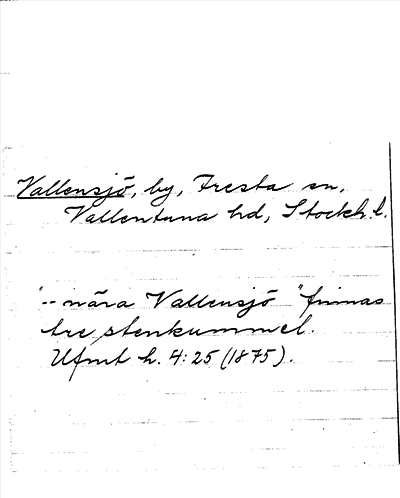 Vallensjö, by, Fresta sn,
Vallentuna hd, Stockh. l.
"-- nära Vallensjö "finnas
tre stenkummel.
Ufmt h. 4:25 (1875).